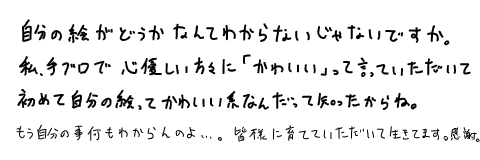 自分の絵がどうかなんてわからないじゃないですか。
私、手ブロで心優しい方々に「かわいい」って言っていただいて
初めて自分の絵ってかわいい系なんだって知ったからね。
もう自分の事何もわからんのよ…。皆様に育てていただいて生きてます。感謝。